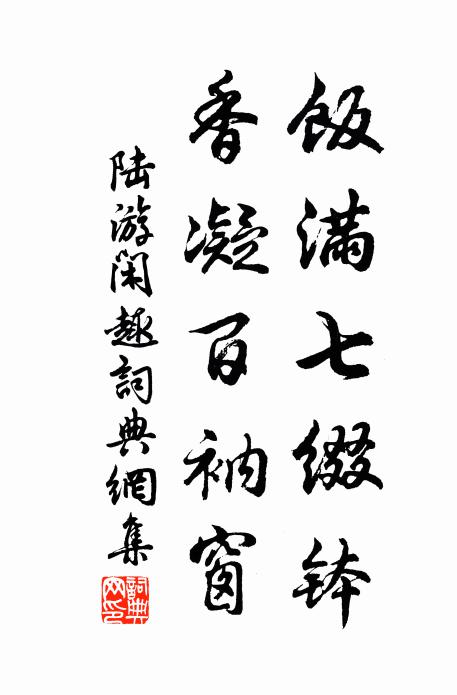 飯滿七綴缽
香凝百衲窗
陸游閑趣詞典網集
詞典
网印